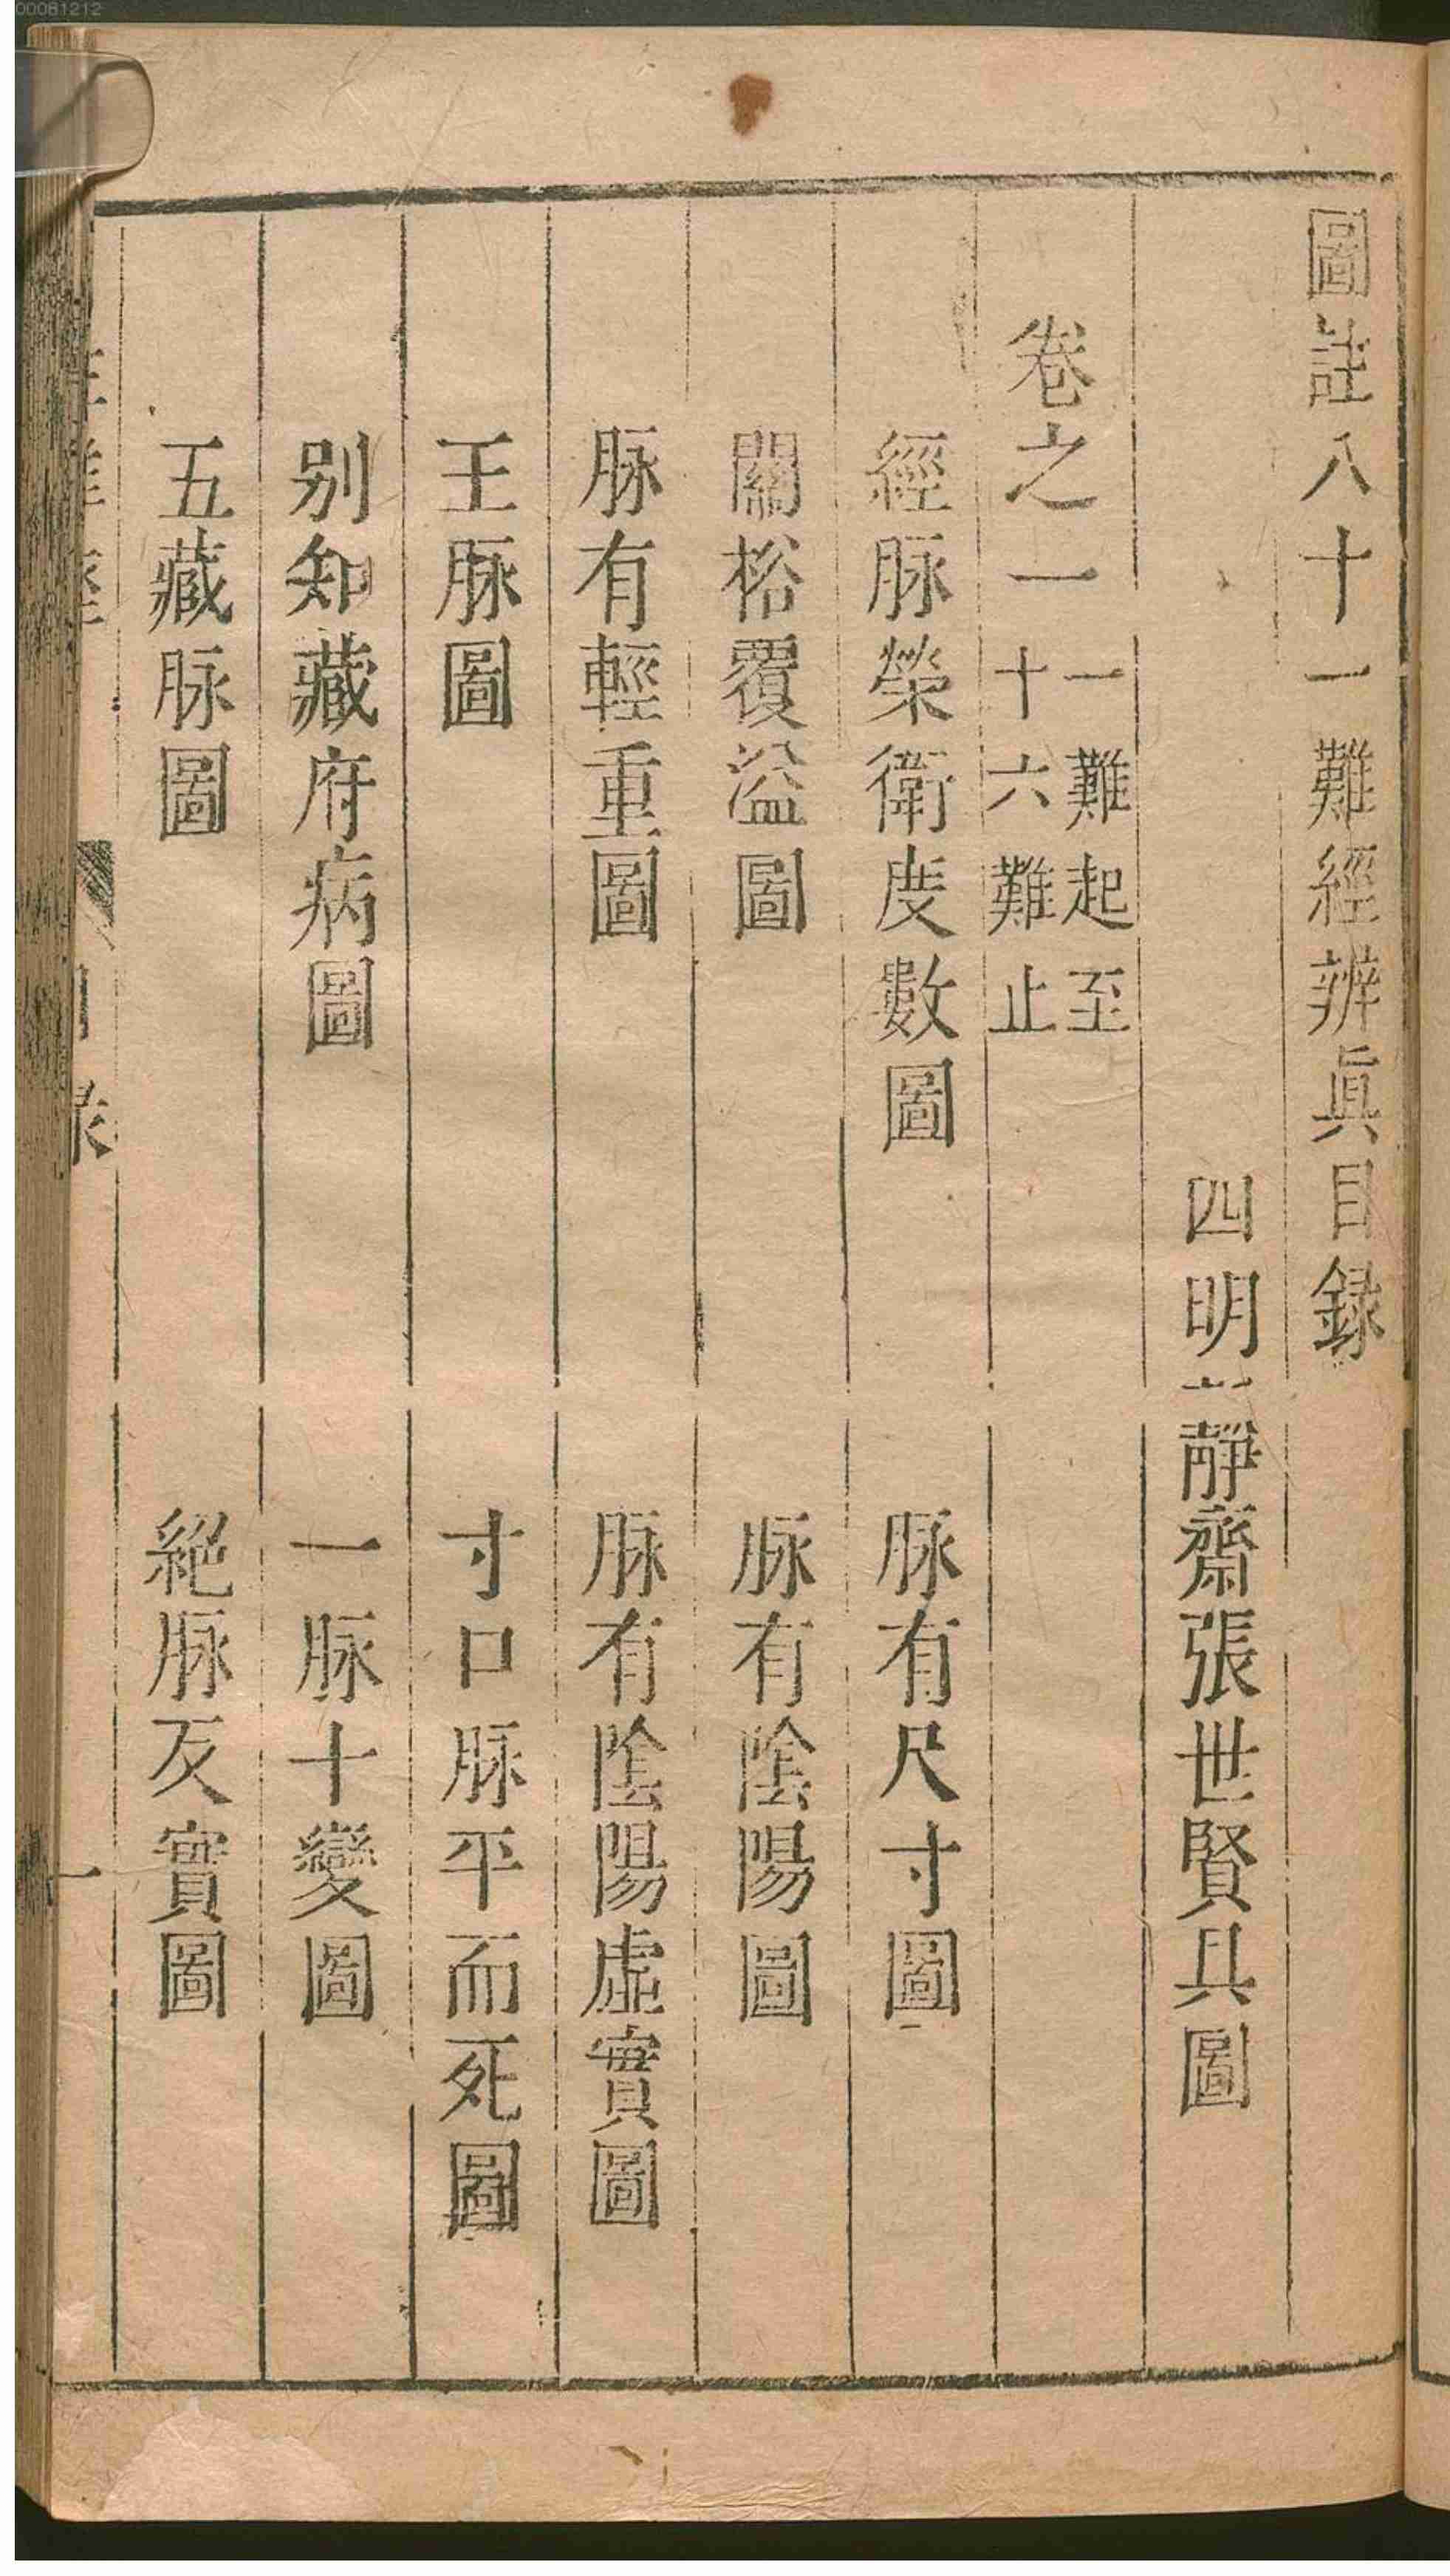 00081212
圖註八十一難經辨眞目録
四明靜齋張世賢具圖
卷之一 一難起至
十六難止
經脉榮衛度數圖 脉有尺寸圖
關格覆溢圖 脉有陰陽圖
脉有輕重圖 脉有陰陽虛實圖
王脉圖 寸口脉平而死圖
别知藏府病圖 一脉十變圖
五藏脉圖 絕脉反實圖
一